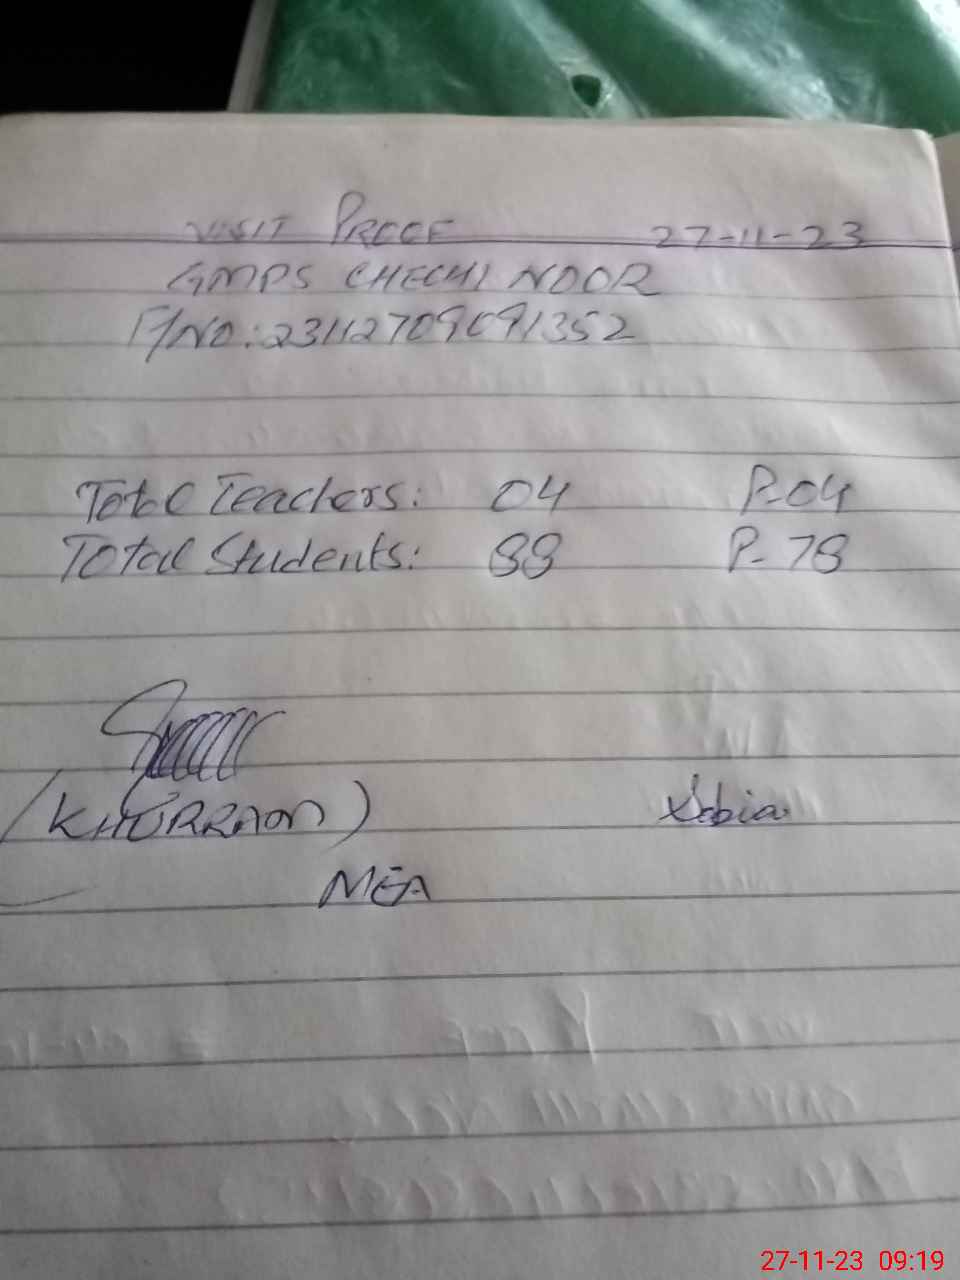 VISIT PROOF 27-11-23
GMPS CHECHI NOOR
F/NO: 231127091352
Total Teachers: 04 P-04
Total Students: 88 P-78
(KHURRAM) Sobia
MEA
27-11-23 09:19